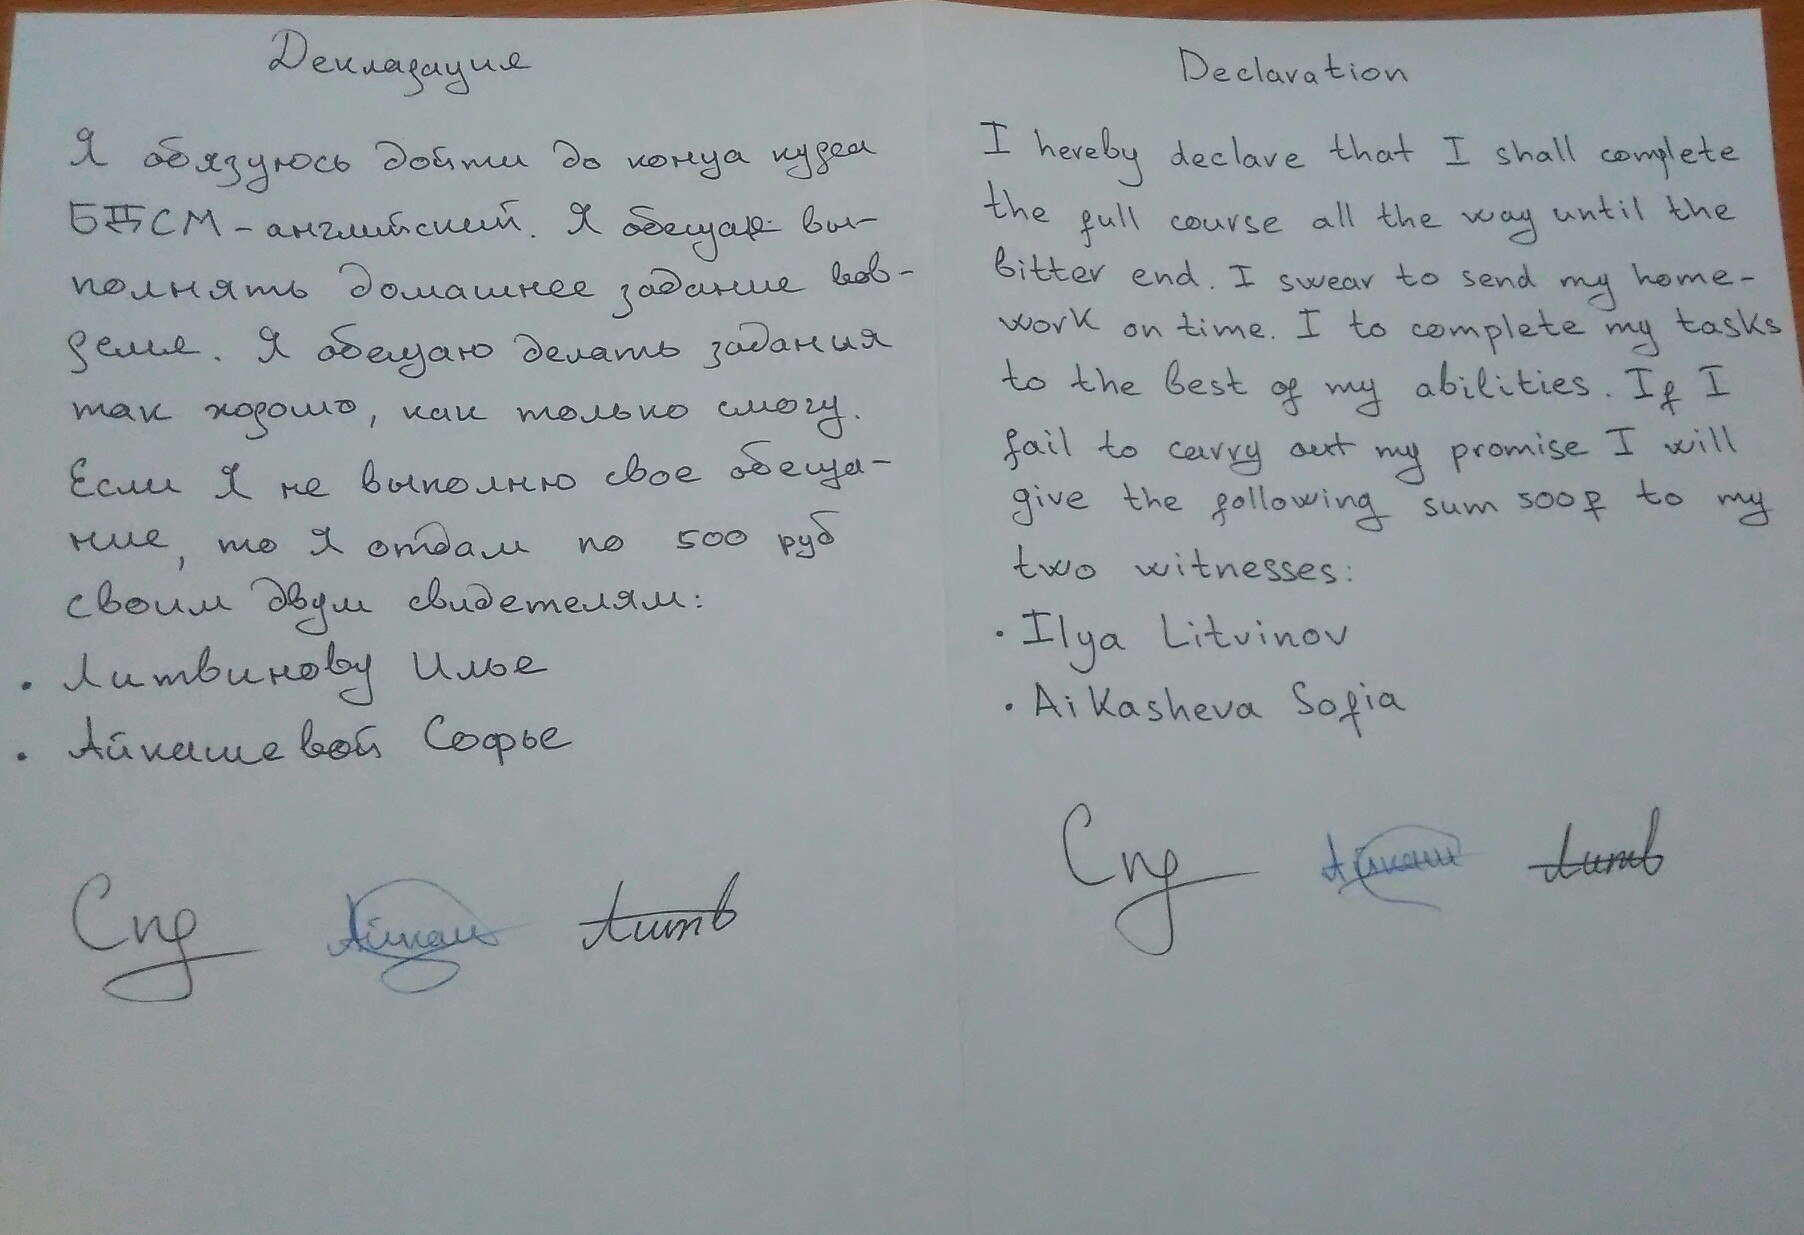 Декларация
Я обязуюсь дойти до конца курса
БПСМ-английский. Я обещаю вы-
полнять домашнее задание вов-
ремя. Я обещаю делать задания
так хорошо, как только смогу.
Если Я не выполню свое обеща-
ние, то Я отдам по 500 руб
своим двум свидетелям:
• Литвинову Илье
• Айкашевой Софье
Спр Айкаш Литв
Declaration
I hereby declare that I shall complete
the full course all the way until the
bitter end. I swear to send my home-
work on time. I to complete my tasks
to the best of my abilities. If I
fail to carry out my promise I will
give the following sum 500₽ to my
two witnesses:
• Ilya Litvinov
• Aikasheva Sofia
Спр Айкаш Литв